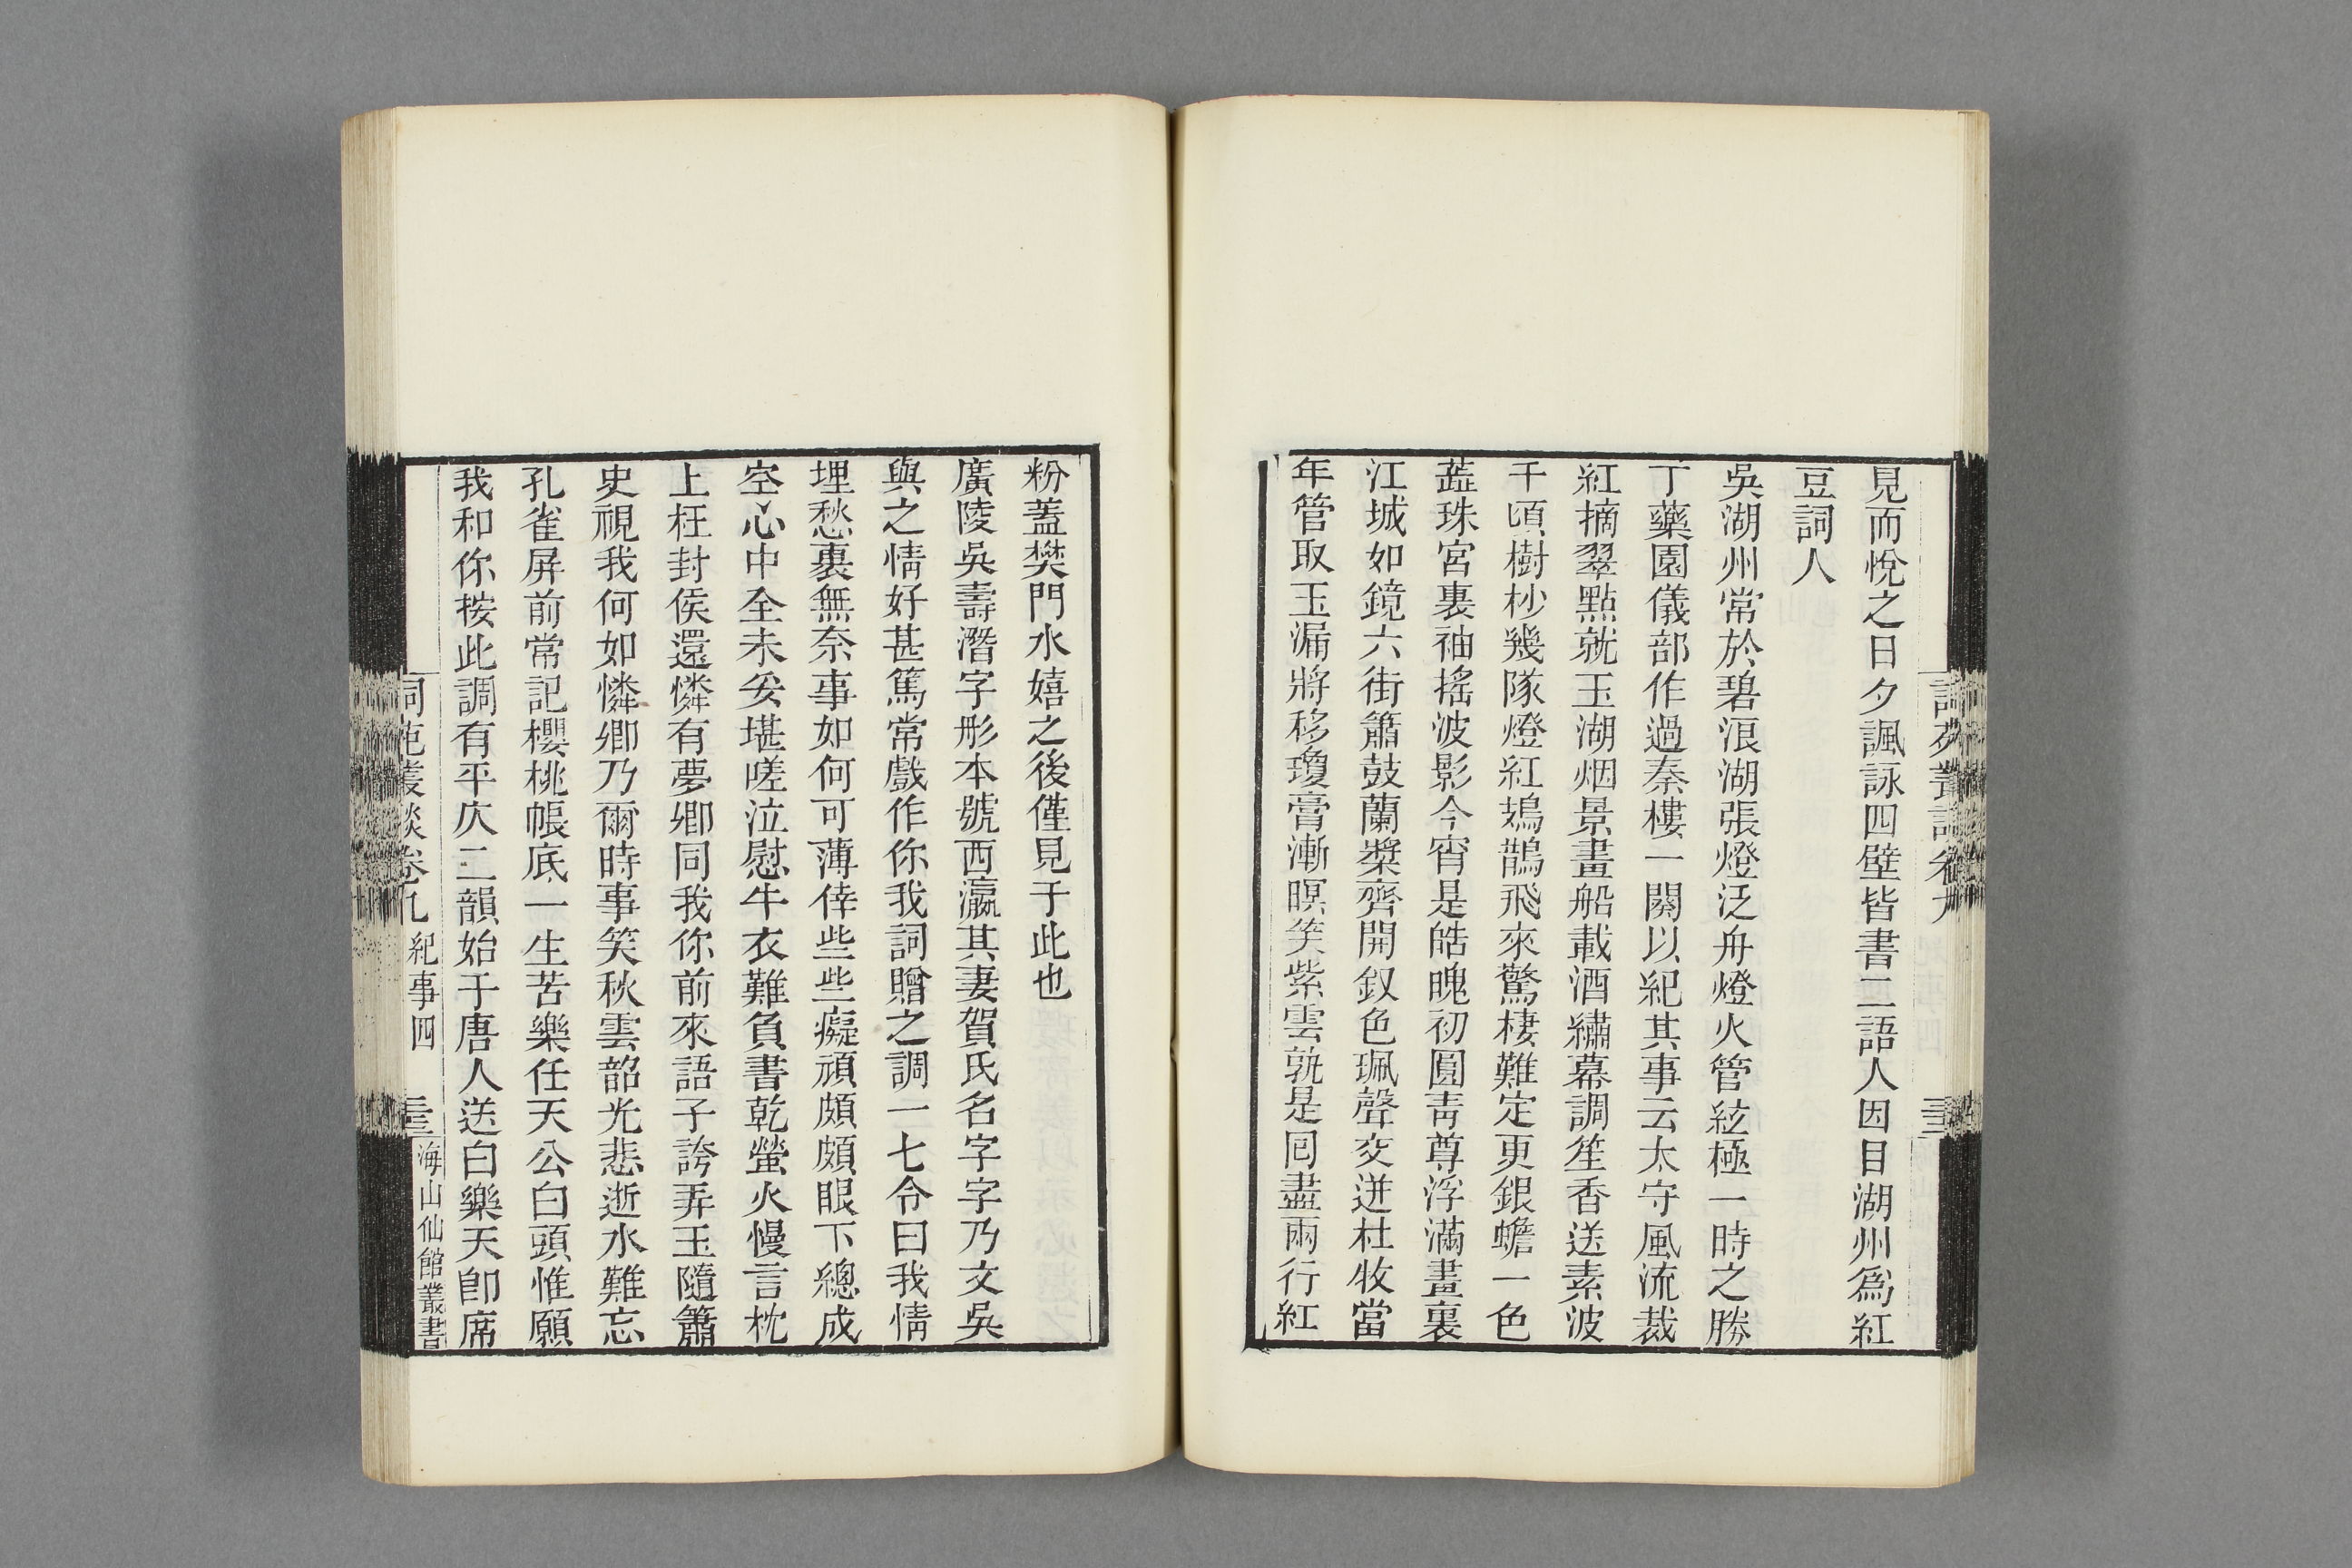 見而悅之日夕諷詠四壁皆書二語人因目湖州爲紅
豆詞人
吳湖州常於碧浪湖張燈泛舟燈火管絃極一時之勝
丁藥園儀部作過秦樓一闋以紀其事云太守風流裁
紅摘翠點就玉湖烟景畫船載酒繡幕調笙香送素波
千頃樹杪幾隊燈紅鴣鵲飛來驚棲難定更銀蟾一色
蕋珠宮裏袖搖波影今宵是皓魄初圓靑尊浮滿畫裏
江城如鏡六街簫鼓蘭槳齊開釵色珮聲交迸杜牧當
年管取玉漏將移瓊膏漸暝笑紫雲孰是囘盡兩行紅
粉蓋樊門水嬉之後僅見于此也
廣陵吳壽潛字彤本號西瀛其妻賀氏名字字乃文吳
與之情好甚篤常戲作你我詞贈之調一七令曰我情
埋愁裏無奈事如何可薄倖些些癡頑頗頗眼下總成
空心中全未妥堪嗟泣慰牛衣難負書乾螢火慢言枕
上枉封侯還憐有夢卿同我你前來語子誇弄玉隨簫
史視我何如憐卿乃爾時事笑秋雲韶光悲逝水難忘
孔雀屏前常記櫻桃帳底一生苦樂任天公白頭惟願
我和你按此調有平仄二韻始于唐人送白樂天卽席
詞苑叢談卷九 紀事四 三十三 海山仙館叢書